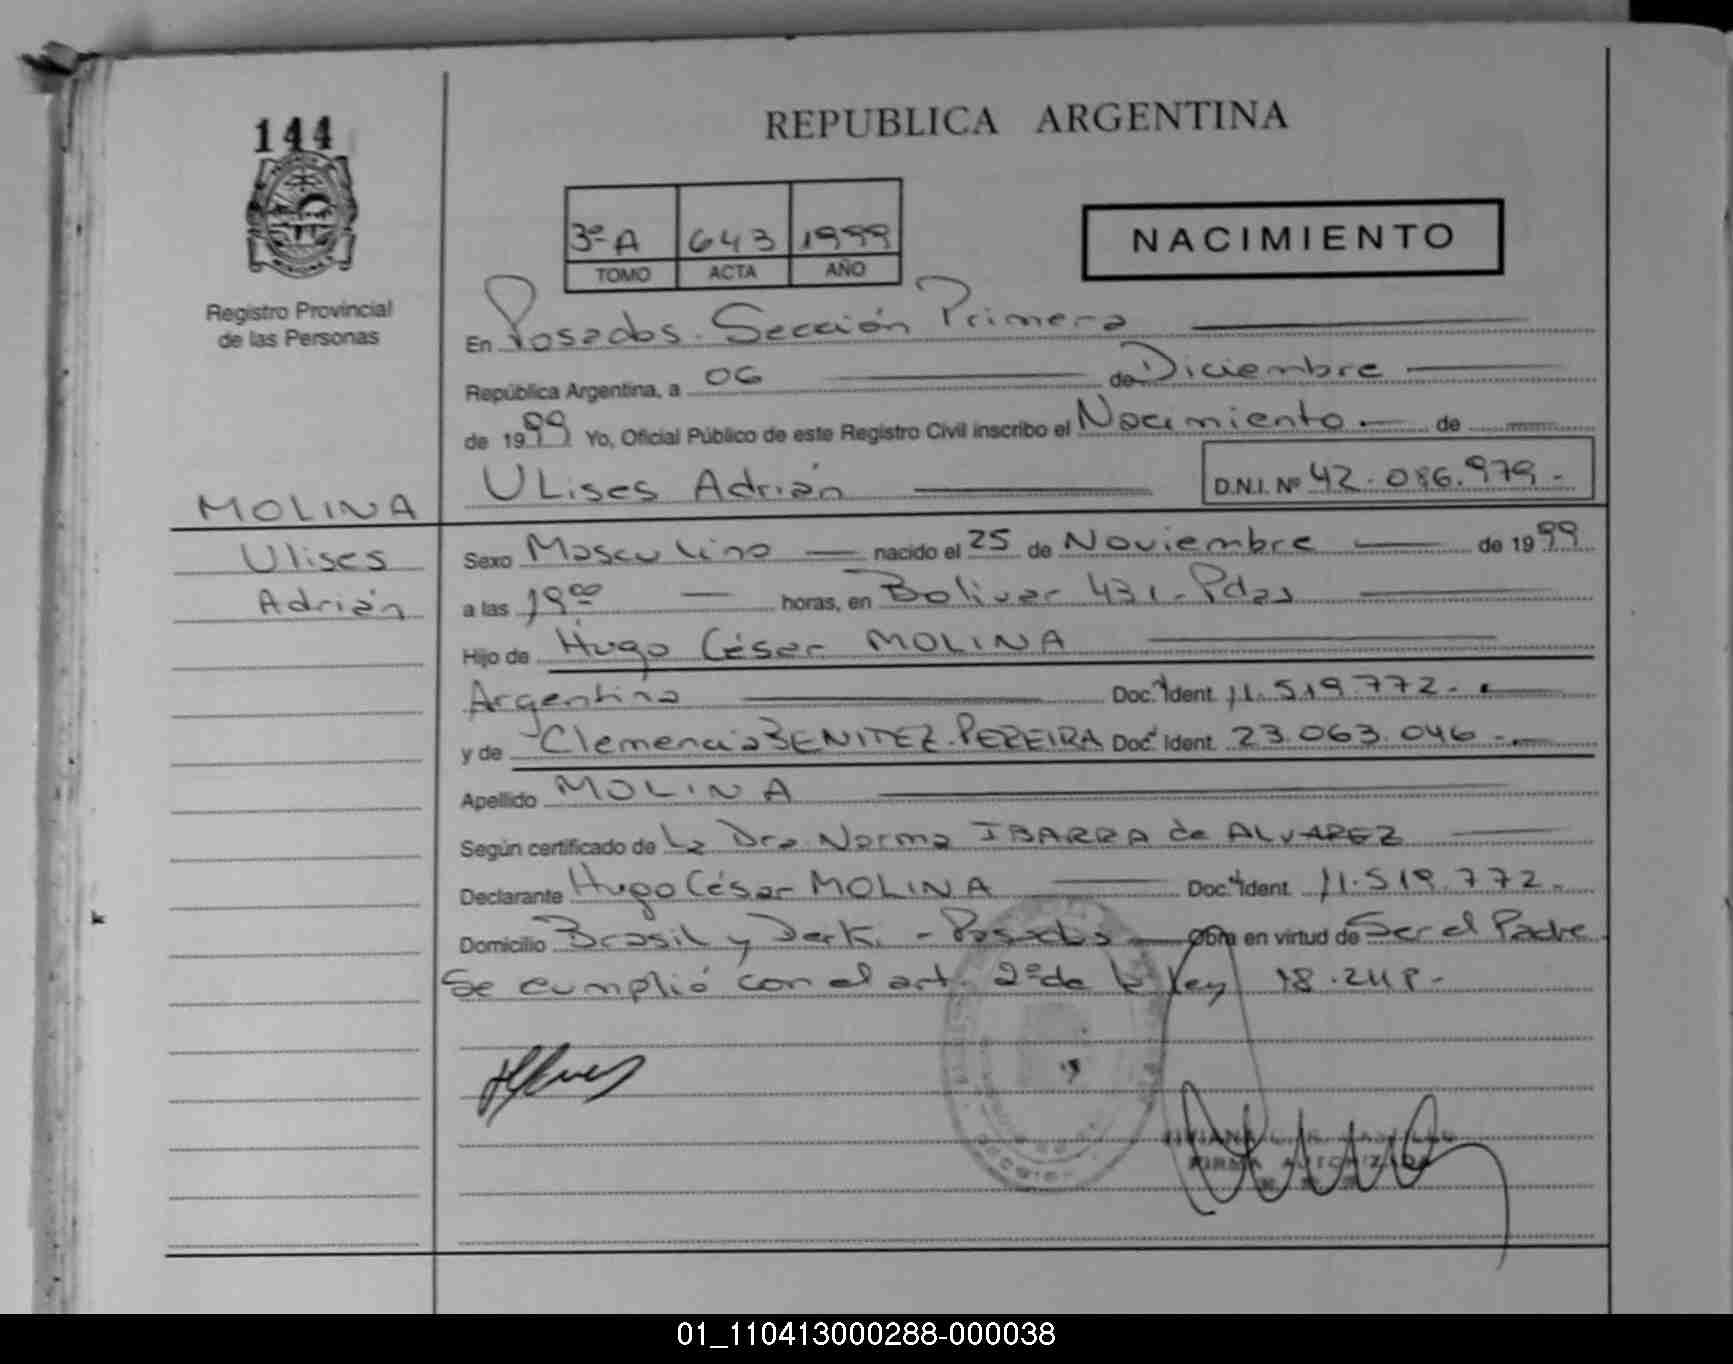 144
REPUBLICA ARGENTINA
3º A 643 1999
TOMO ACTA AÑO
NACIMIENTO
Registro Provincial
de las Personas
En Posadas. Sección Primera
República Argentina, a 06 de Diciembre
de 1999 Yo, Oficial Público de este Registro Civil inscribo el Nacimiento de
Ulises Adrián D.N.I. Nº 42.086.979.-
MOLINA
Ulises
Adrián
Sexo Masculino nacido el 25 de Noviembre de 1999
a las 19⁰⁰ horas, en Bolivar 431 - Pdas
Hijo de Hugo César MOLINA
Argentina Doc. Ident. 11.519.772.-
y de Clemencia BENITEZ PEREIRA Doc. Ident. 23.063.046.-
Apellido MOLINA
Según certificado de La Dra. Norma IBARRA de ALVAREZ
Declarante Hugo César MOLINA Doc. Ident. 11.519.772.
Domicilio Brasil y Derki - Posadas Obra en virtud de Ser el Padre
Se cumplió con el art. 2º de la Ley 18.248.-
FIRMA AUTORIZADA
01_110413000288-000038